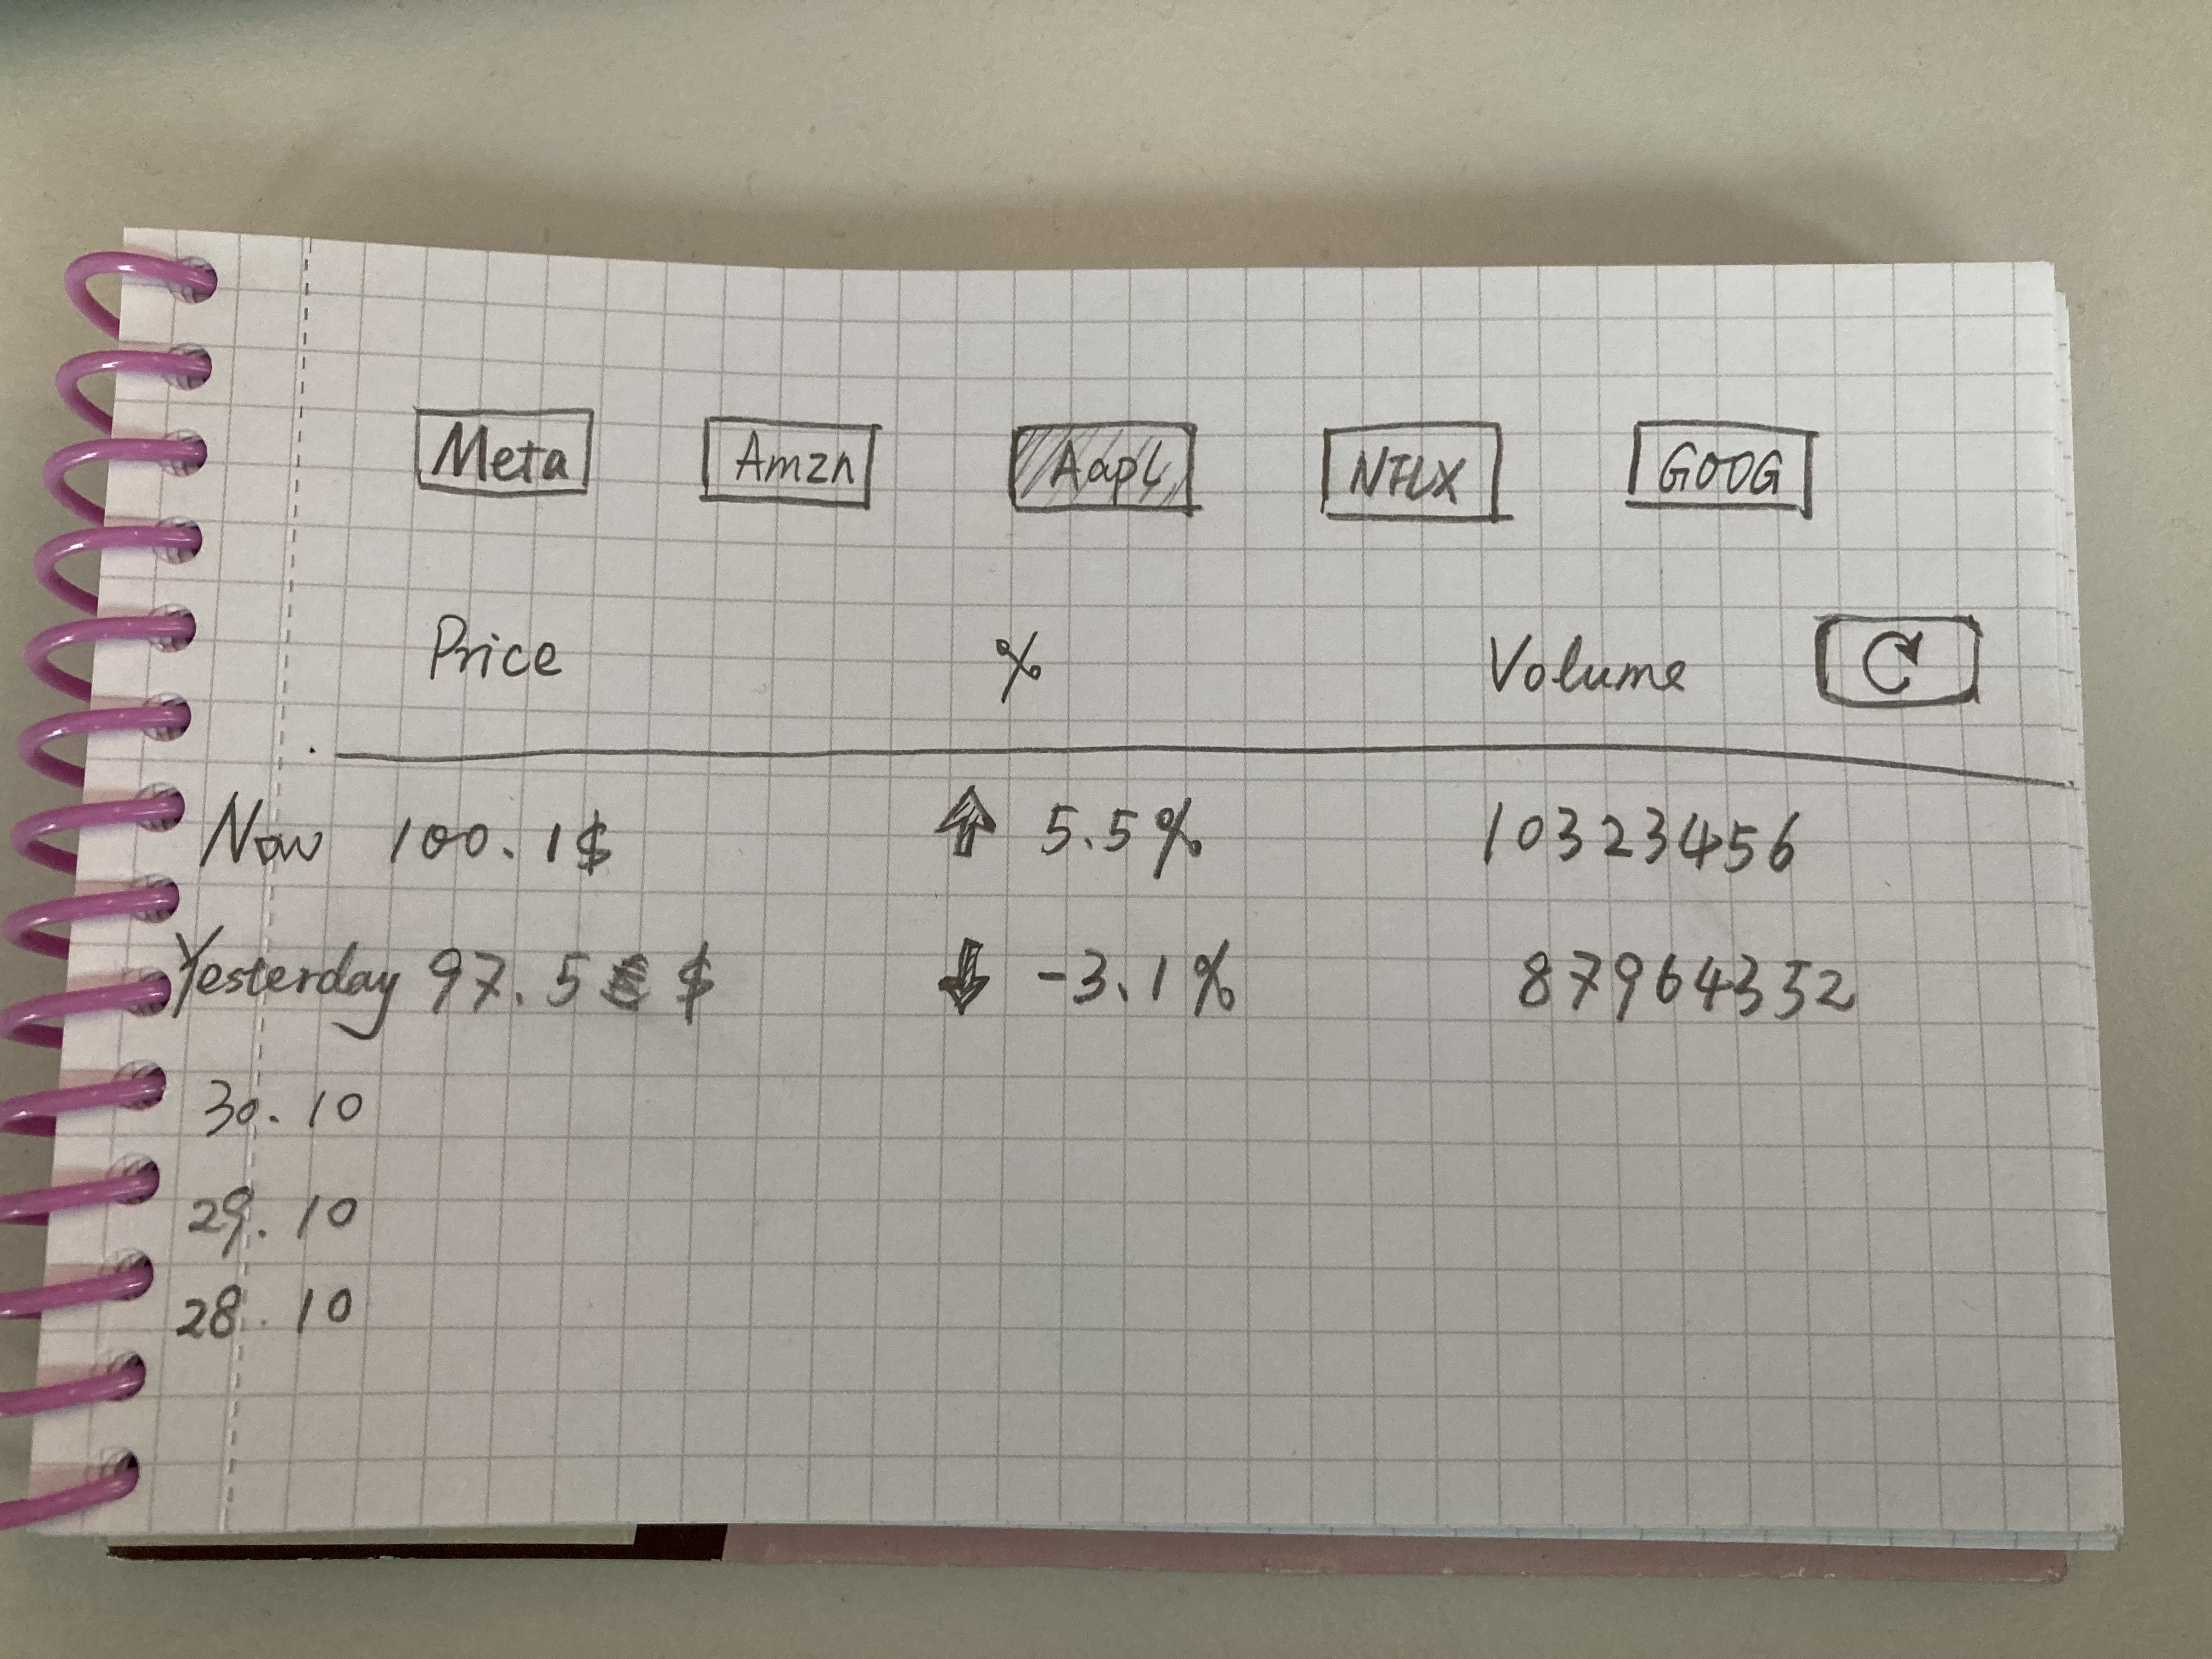 Meta Amzn Aapl NFLX GOOG
Price % Volume
Now 100.1$ 5.5% 10323456
Yesterday 97.5 $ -3.1% 87964352
30.10
29.10
28.10